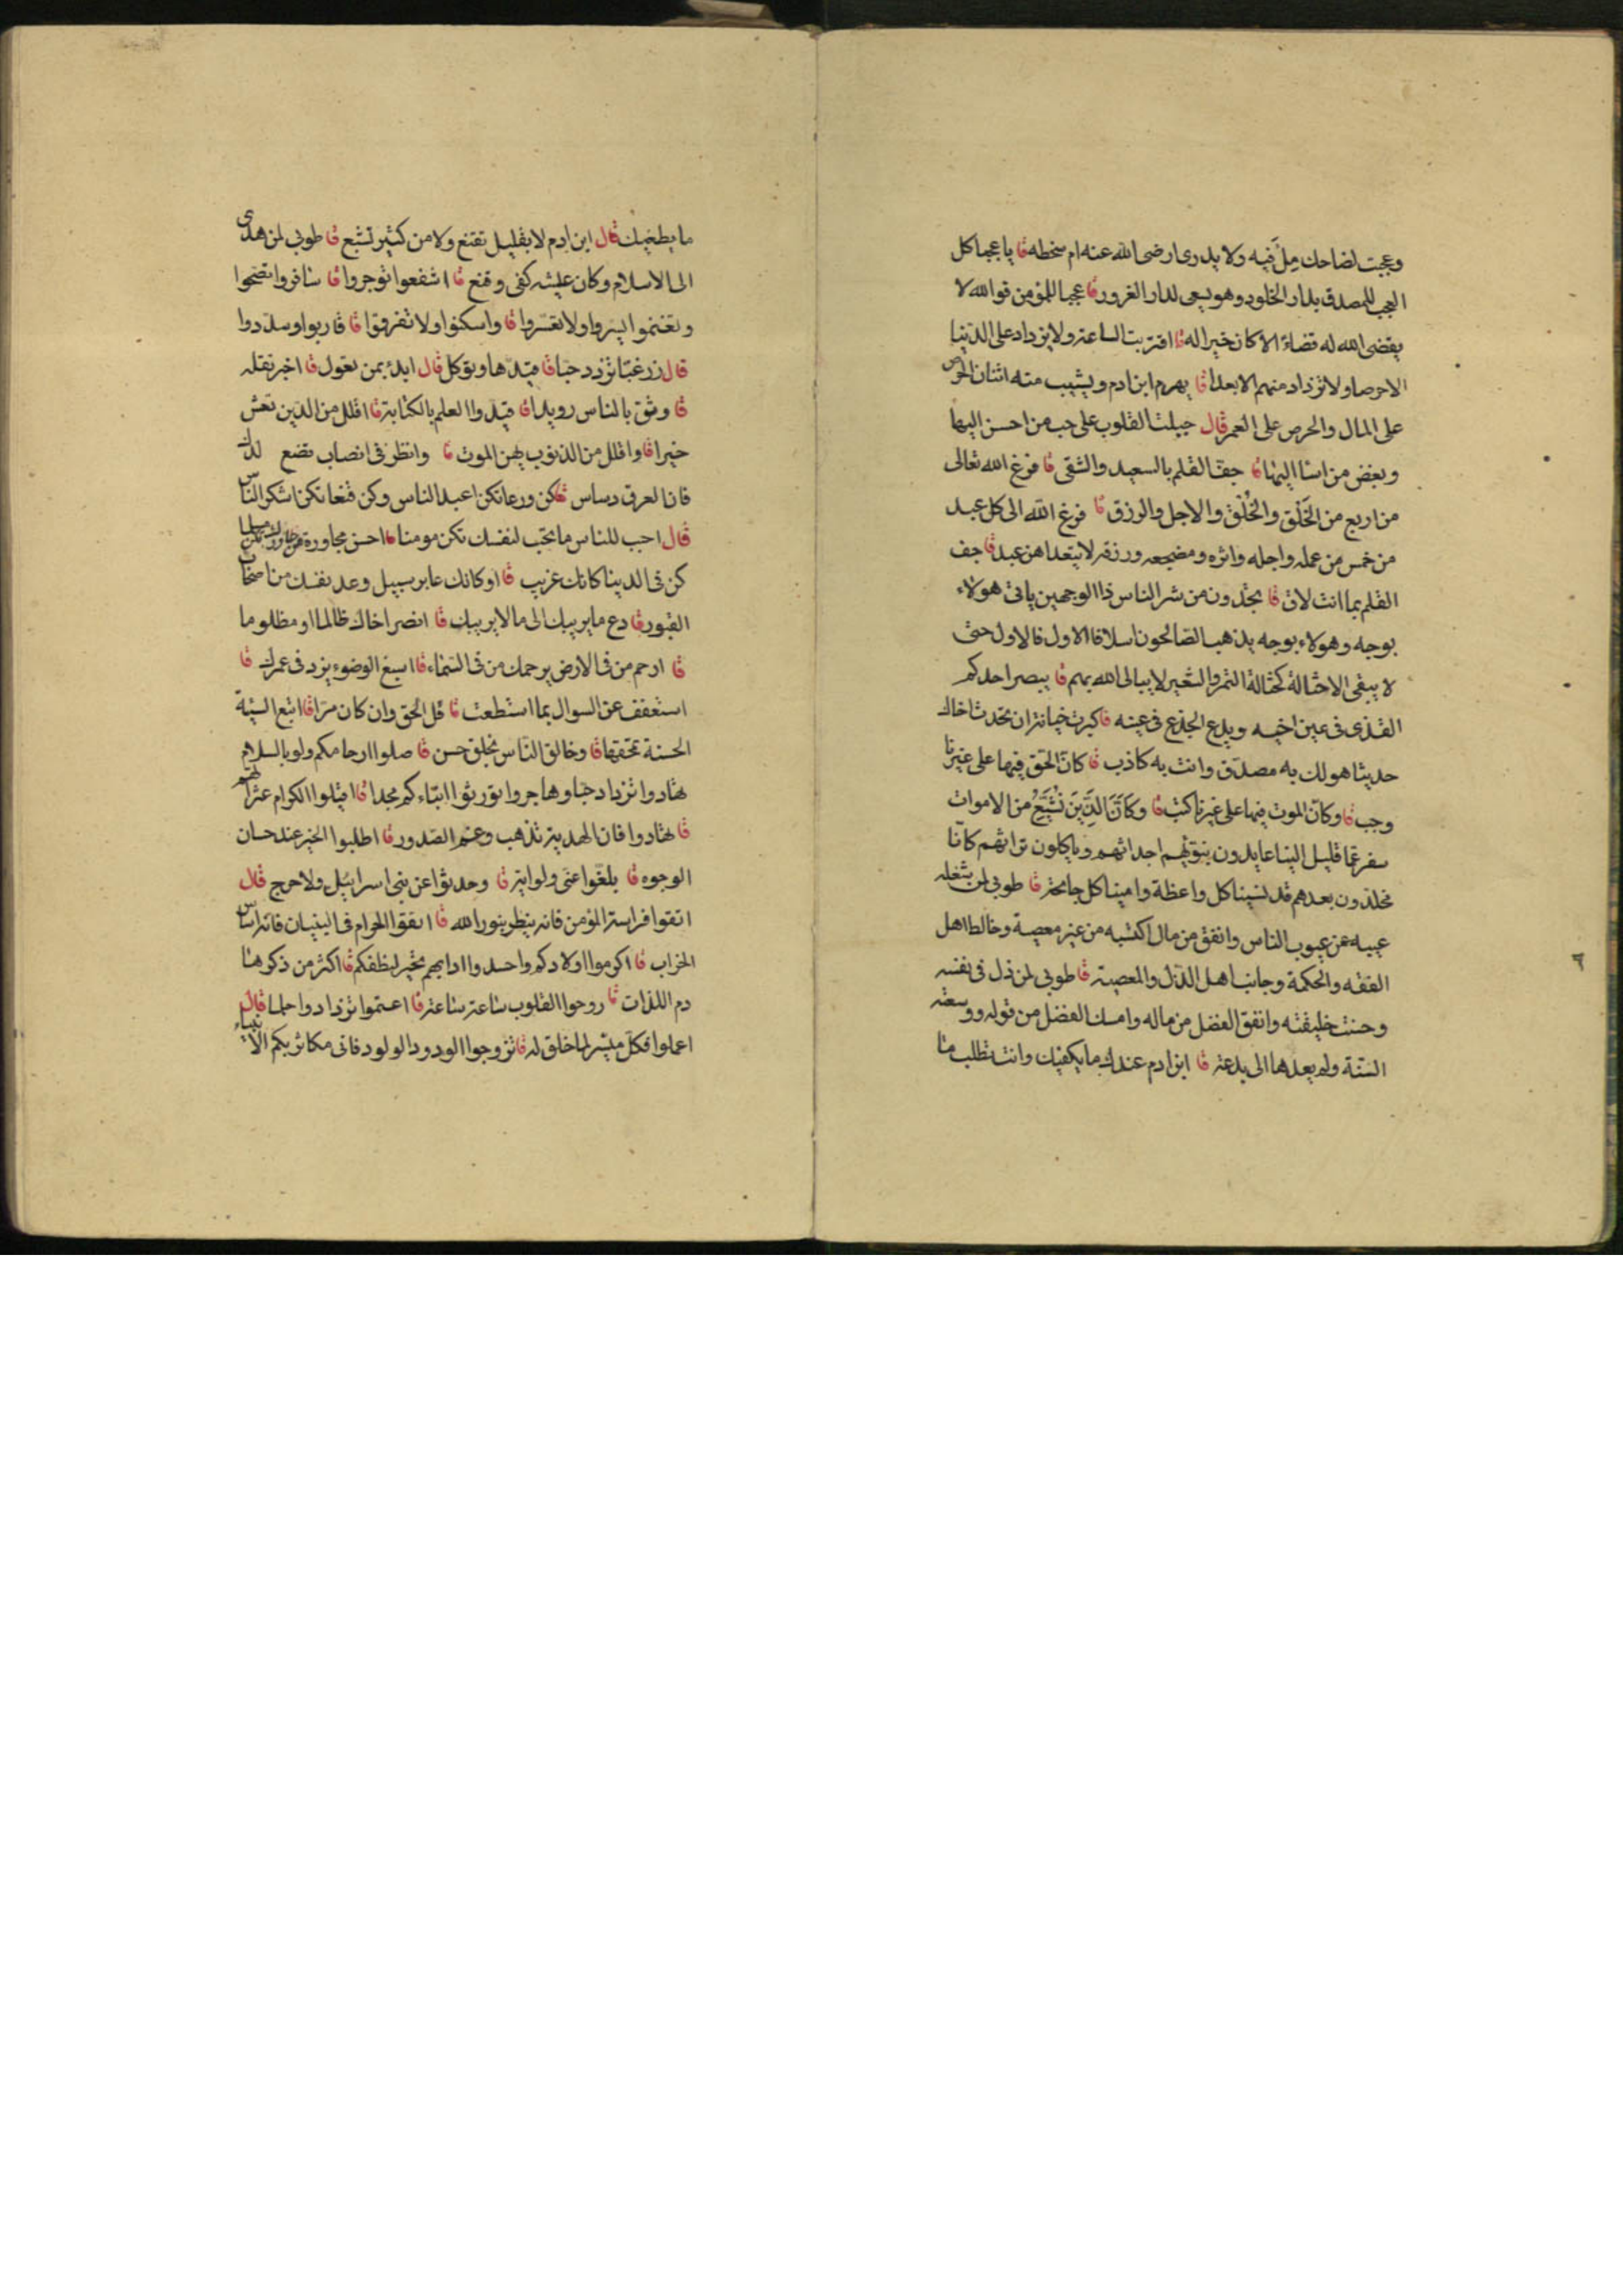 وعجبت لضاحك مِلْ فيه ولا يدرى ارضى الله عنه ام سخطه قا يا عجبا كل
العجب للمصدق بدار الخلود وهو يسعى لدار الغرور قا عجبا للمؤمن فوالله لا
يقضى الله له قضاءً الا كان خيرا له قا اقتربت الساعة ولا يزداد على الدنيا
الا حرصا ولا تزداد منهم الا بعدا قا يهرم ابن ادم ويشيب منه اثنان الحرص
على المال والحرص على العمر قال جبلت القلوب على حب من احسن اليها
وبغض من اسا اليها قا جف القلم بالسعيد والشقى قا فرغ الله تعالى
من اربع من الخَلْق والخُلْق والاجل والرزق قا فرغ الله الى كل عبد
من خمس من عمله واجله واثره ومضجعه ورزقه لا يتعداهن عبد قا جف
القلم بما انت لاق قا تجدون من شر الناس ذا الوجهين ياتى هولاء
بوجه وهولاء بوجه يذهب الصالحون اسلافا الاول فالاول حتى
لا يبقى الا حثالة كحثالة التمر والشعير لا يبالى الله بهم قا يبصر احدكم
القذى فى عين اخيه ويدع الجذع فى عينه قا كبرت خيانة ان تحدث اخاك
حديثا هو لك به مصدق وانت به كاذب قا كان الحق فيها على غيرنا
وجب قا وكان الموت فيها على غيرنا كتب قا وكَانَّ الذِينَ نُشَيِّعُ من الاموات
سفر عما قليل الينا عايدون بنوئهم اجداثهم وياكلون تراثهم كانّا
مخلدون بعدهم قد نسينا كل واعظة وامينا كل جائحة قا طوبى لمن شغله
عيبه عن عيوب الناس وانفق من مال اكتسبه من غير معصية وخالط اهل
الفقه والحكمة وجانب اهل الذل والمعصية قا طوبى لمن ذل فى نفسه
وحسنت خليقته وانفق الفضل من ماله وامسك الفضل من قوله ووسعته
السنة ولم يعدها الى بدعة قا ابن ادم عندك ما يكفيك وانت تطلب ما
ما يطغيك قال ابن ادم لا بقليل تقنع ولا من كثير تشبع قا طوبى لمن هدى
الى الاسلام وكان عيشه كفى وقنع قا اشفعوا توجروا قا سافروا تصحوا
وتغنموا يسروا ولا تعسروا قا واسكنوا ولا تنفروا قا قاربوا وسددوا
قال زر غبّا تزدد حبّا قا قيدها وتوكل قال ابدء بمن تعول قا اخبر تقله
قا وثق بالناس رويدا قا قيّدوا العلم بالكتابة قا اقلل من الدين تعش
خيرا قا واقلل من الذنوب يهن الموت قا وانظر فى انصاب تضع لدك
فان العرق دساس قا كن ورعا تكن اعبد الناس وكن قنعا تكن اشكر الناس
قال احب للناس ما تحب لنفسك تكن مومنا قا احسن مجاورة من جاورك تكن مسلما
كن فى الدينا كانك غريب قا او كانك عابر سبيل وعد نفسك من اصحاب
القبور قا دع ما يريبك الى ما لا يريبك قا انصر اخاك ظالما او مظلوما
قا ارحم من فى الارض يرحمك من فى السماء قا اسبغ الوضوء يزد فى عمرك قا
استعفف عن السوال بما استطعت قا قل الحق وان كان مرّا قا اتبع السيئة
الحسنة تمحقها قا وخالق الناس بخلق حسن قا صلوا ارحامكم ولو بالسلام
تهادوا تزدادحبّا وهاجروا تورثوا ابناءكم مجدا قا اقيلوا الكرام عثراتهم
قا تهادوا فان الهدية تذهب وغم الصدور قا اطلبوا الخير عند حسان
الوجوه قا بلغوا عنى ولو اية قا وحدثوا عن بنى اسرائيل ولا حرج قال
اتقوا فراسة المؤمن فانه ينظر بنور الله قا اتقوا الحرام فى البنيان فانه اساس
الخراب قا اكرموا اولادكم واحسدوا ادابهم قا اكثر من ذكر ها
دم اللذات قا روحوا القلوب ساعة ساعة قا اعتموا تزدادوا حلما قال
اعملوا فكل ميسر لما خلق له قا تزوجوا الودود الولود فانى مكاثر بكم الانبياء